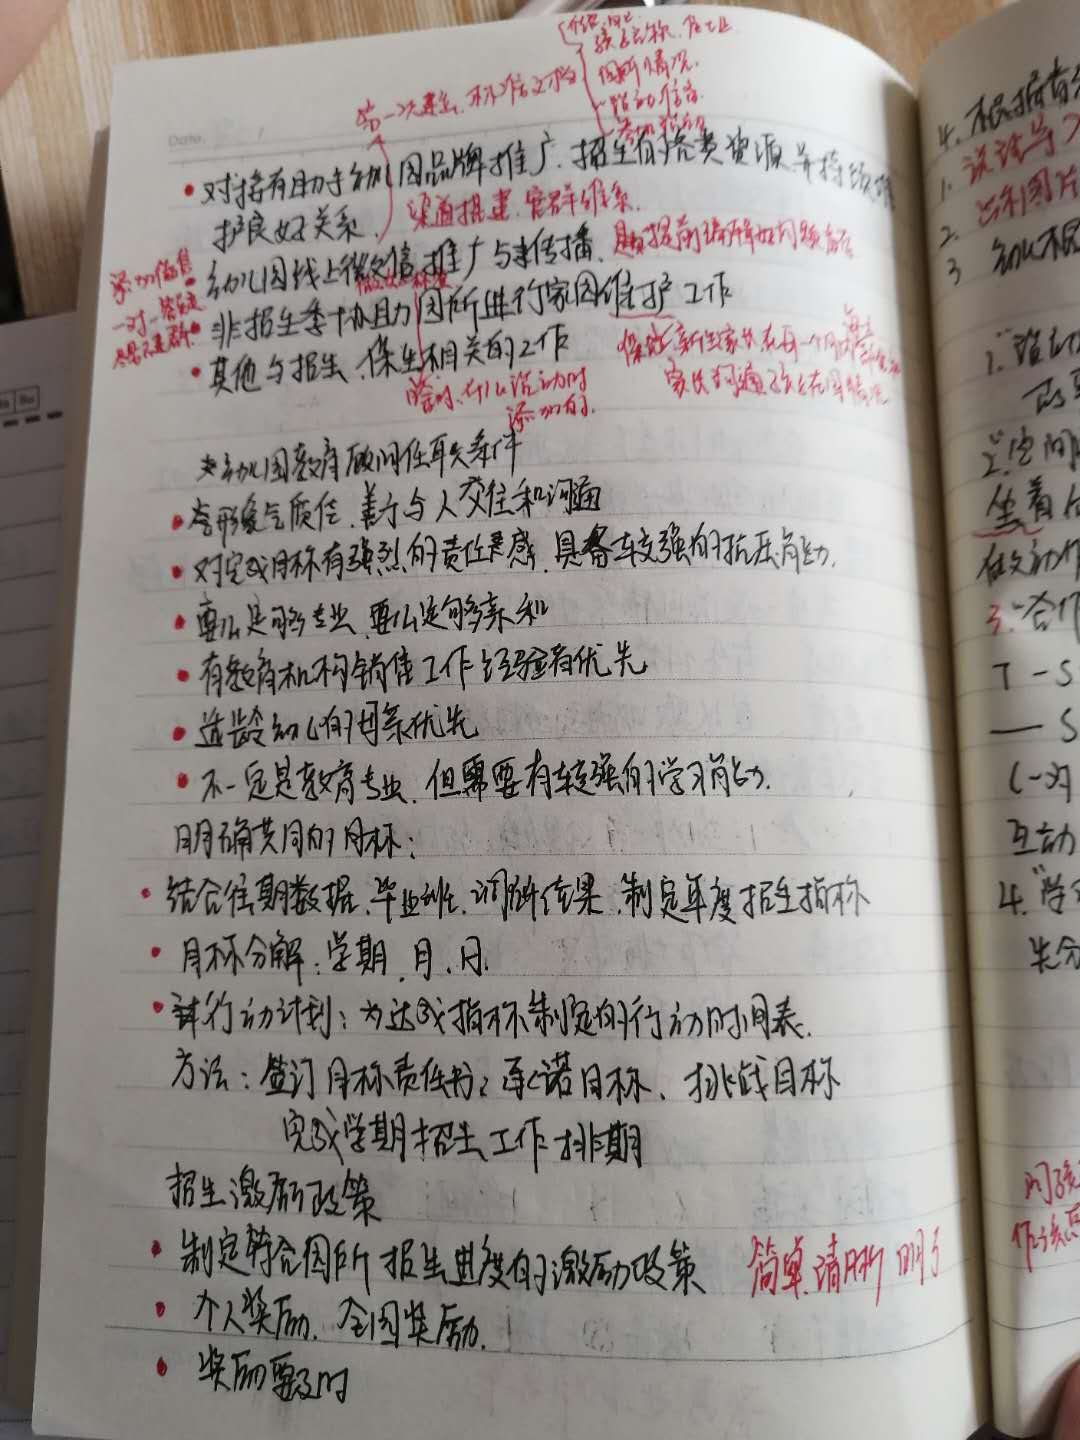 第一次建立、标准文档
园所情况
活动信息
Date.
• 对接有助于幼儿园品牌推广、招生的各类资源并持续维
护良好关系. 渠道搭建、客群维系.
• 幼儿园线上微信推广与传播、
• 非招生季协助园所进行家园维护工作
• 其他与招生、保生相关的工作
添加信息
一对一
添加的.
幼儿园教育顾问任职条件
• 形象气质佳、善于与人交往和沟通
• 对完成目标有强烈的责任感、具备较强的抗压能力.
• 要么足够专业、要么足够亲和
• 有教育机构销售工作经验者优先
• 适龄幼儿的母亲优先
• 不一定是教育专业、但需要有较强的学习能力.
明确共同的目标:
• 结合往期数据、毕业班、调研结果、制定年度招生指标
• 目标分解:学期、月、日.
• 行动计划:为达成指标制定的行动时间表.
方法:签订目标责任书;承诺目标、挑战目标
完成学期招生工作排期
招生激励政策
• 制定符合园所招生进度的激励政策 简单、清晰明了
• 个人奖励、全园奖励.
• 奖励要及时
4. 根据有
1.
2.
3 幼儿
1."
的
2."空间
坐着
做动作
3."合作
T-S
— S
(一对
互动
4."学
问孩